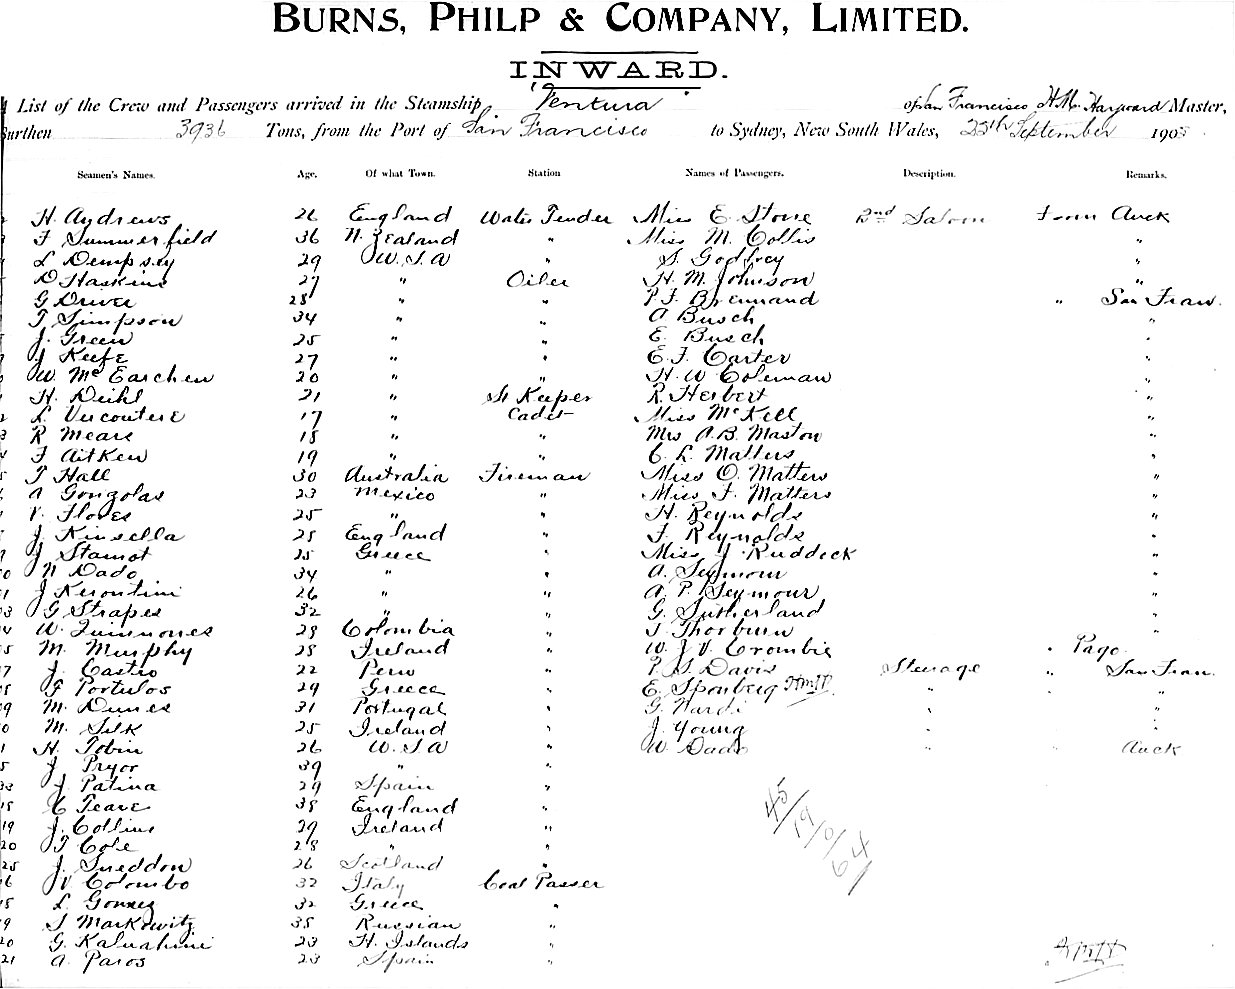 BURNS, PHILP & COMPANY, LIMITED.
INWARD.
List of the Crew and Passengers arrived in the Steamship, Ventura of San Francisco H.M. Hayward Master,
Burthen 3936 Tons, from the Port of San Francisco to Sydney, New South Wales, 25th September 1905
Seamen's Names. Age. Of what Town. Station Names of Passengers. Description. Remarks.
H. Andrews 26 England Water Tender Miss E. Stone 2nd Saloon From Auck
F Summerfield 36 N. Zealand " Miss M. Collis "
L Dempsey 29 U.S.A " S. Godfrey "
D Haskins 27 " Oiler H. M. Johnson "
G Driver 28 " " P.F. Brennand " San Fran.
T Simpson 34 " " A Busch "
J. Green 25 " " E. Busch "
J Keefe 27 " " E. F. Carter "
W. McEachen 20 " " H. W Coleman "
H. Deihl 21 " St Keeper R. Herbert "
L. Vercoutere 17 " Cadet Miss McKell "
R Meare 18 " " Mrs A.B. Maston "
F Aitken 19 " " C. L. Matters "
T Hall 30 Australia Fireman Miss O. Matters "
A Gonzolas 23 Mexico " Miss F. Matters "
V. Flores 25 " " H. Reynolds "
J. Kinsella 28 England " F. Reynolds "
J Stamot 25 Greece " Miss J Ruddock "
N Dado 34 " " A. Seymour "
J Kerontini 26 " " A. P. Seymour "
G Strapes 32 " " G. Sutherland "
W. Quinnones 28 Colombia " T Thorburn "
M. Murphy 28 Ireland " W. J. V. Crombie " Pago
J. Castro 22 Peru " P S Davis Steerage " San Fran.
G Portulos 29 Greece " E. Sponberg " "
M. Dunes 31 Portugal " G. Nardi " "
M. Silk 25 Ireland " J. Young " "
H. Tobin 26 U.S.A " W. Dads " " Auck
J. Pryor 39 " "
J. Patina 29 Spain "
C Peare 38 England "
J. Collins 29 Ireland "
T Cole 28 " "
J. Sneddon 26 Scotland "
V Colombo 32 Italy Coal Passer
L. Gonnez 32 Greece "
S Markowitz 35 Russian "
G. Kaluahini 23 H. Islands "
A. Paros 23 Spain "
45/19/0/64